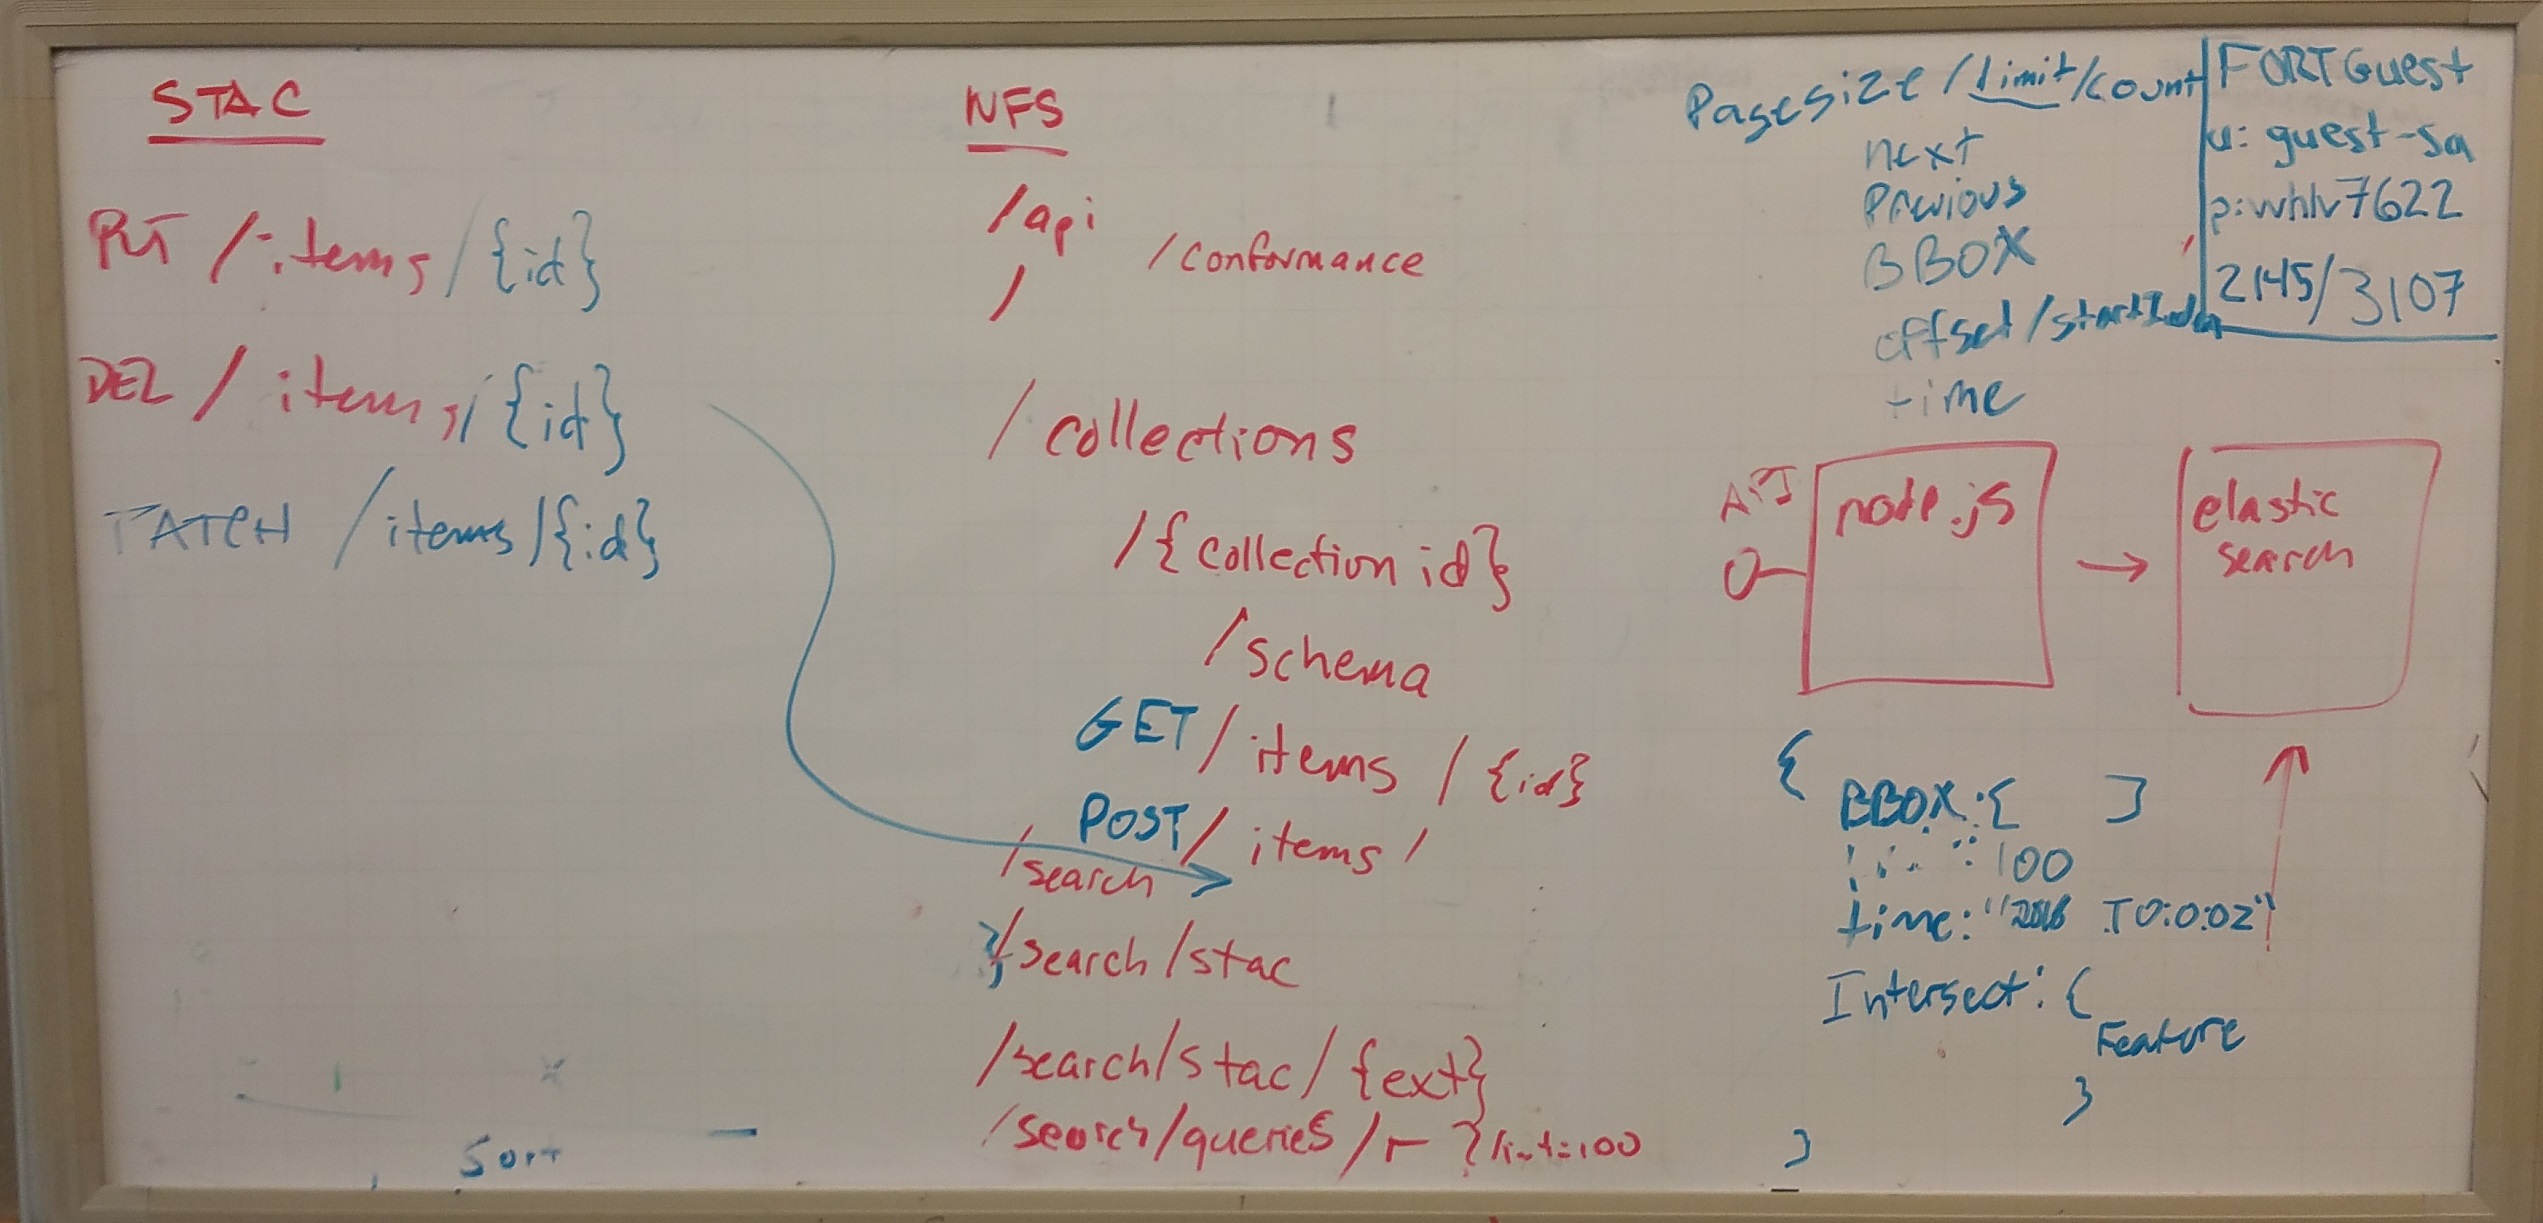 STAC
PUT /items/{id}
DEL /items/{id}
PATCH /items/{id}
Sort
NFS
/api
/conformance
/
/collections
/{collection id}
/schema
GET /items /{id}
POST / items /
/search
/search/stac
/search/stac/{ext}
/search/queries/r ?limit=100
Pagesize/limit/count
next
Previous
BBOX
offset/startIndex
time
FORTGuest
u: guest-sa
2145/3107
API
node.js
elastic
search
{
BBOX:[ ]
: 100
time: "2018 T0:0:0Z"
Intersect: {
Feature
}
}